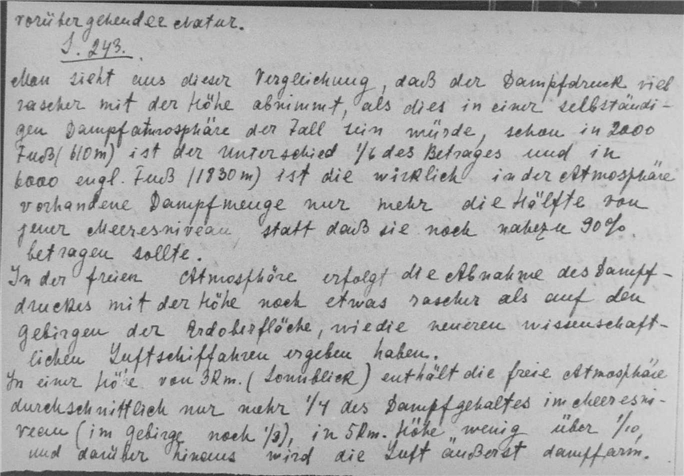 vorübergehender Natur.
S. 243.
Man sieht aus dieser Vergleichung, daß der Dampfdruck viel
rascher mit der Höhe abnimmt, als dies in einer selbständi-
gen Dampfatmosphäre der Fall sein würde, schon in 2000
Fuß (610m) ist der Unterschied 1/6 des Betrages und in
6000 engl. Fuß (1830m) ist die wirklich in der Atmosphäre
vorhandene Dampfmenge nur mehr die Hälfte von
jener Meeresniveau, statt daß sie noch nahezu 90%
betragen sollte.
In der freien Atmosphäre erfolgt die Abnahme des Dampf-
druckes mit der Höhe noch etwas rascher als auf den
Gebirgen der Erdoberfläche, wie die neueren wissenschaft-
lichen Luftschiffahren ergeben haben.
In einer Höhe von 3Km. (Sonnblick) enthält die freie Atmosphäre
durchschnittlich nur mehr 1/4 des Dampfgehaltes im Meeresni-
veau (im Gebirge noch 1/3), in 5Km. Höhe wenig über 1/10,
und darüber hinaus wird die Luft äußerst dampfarm.